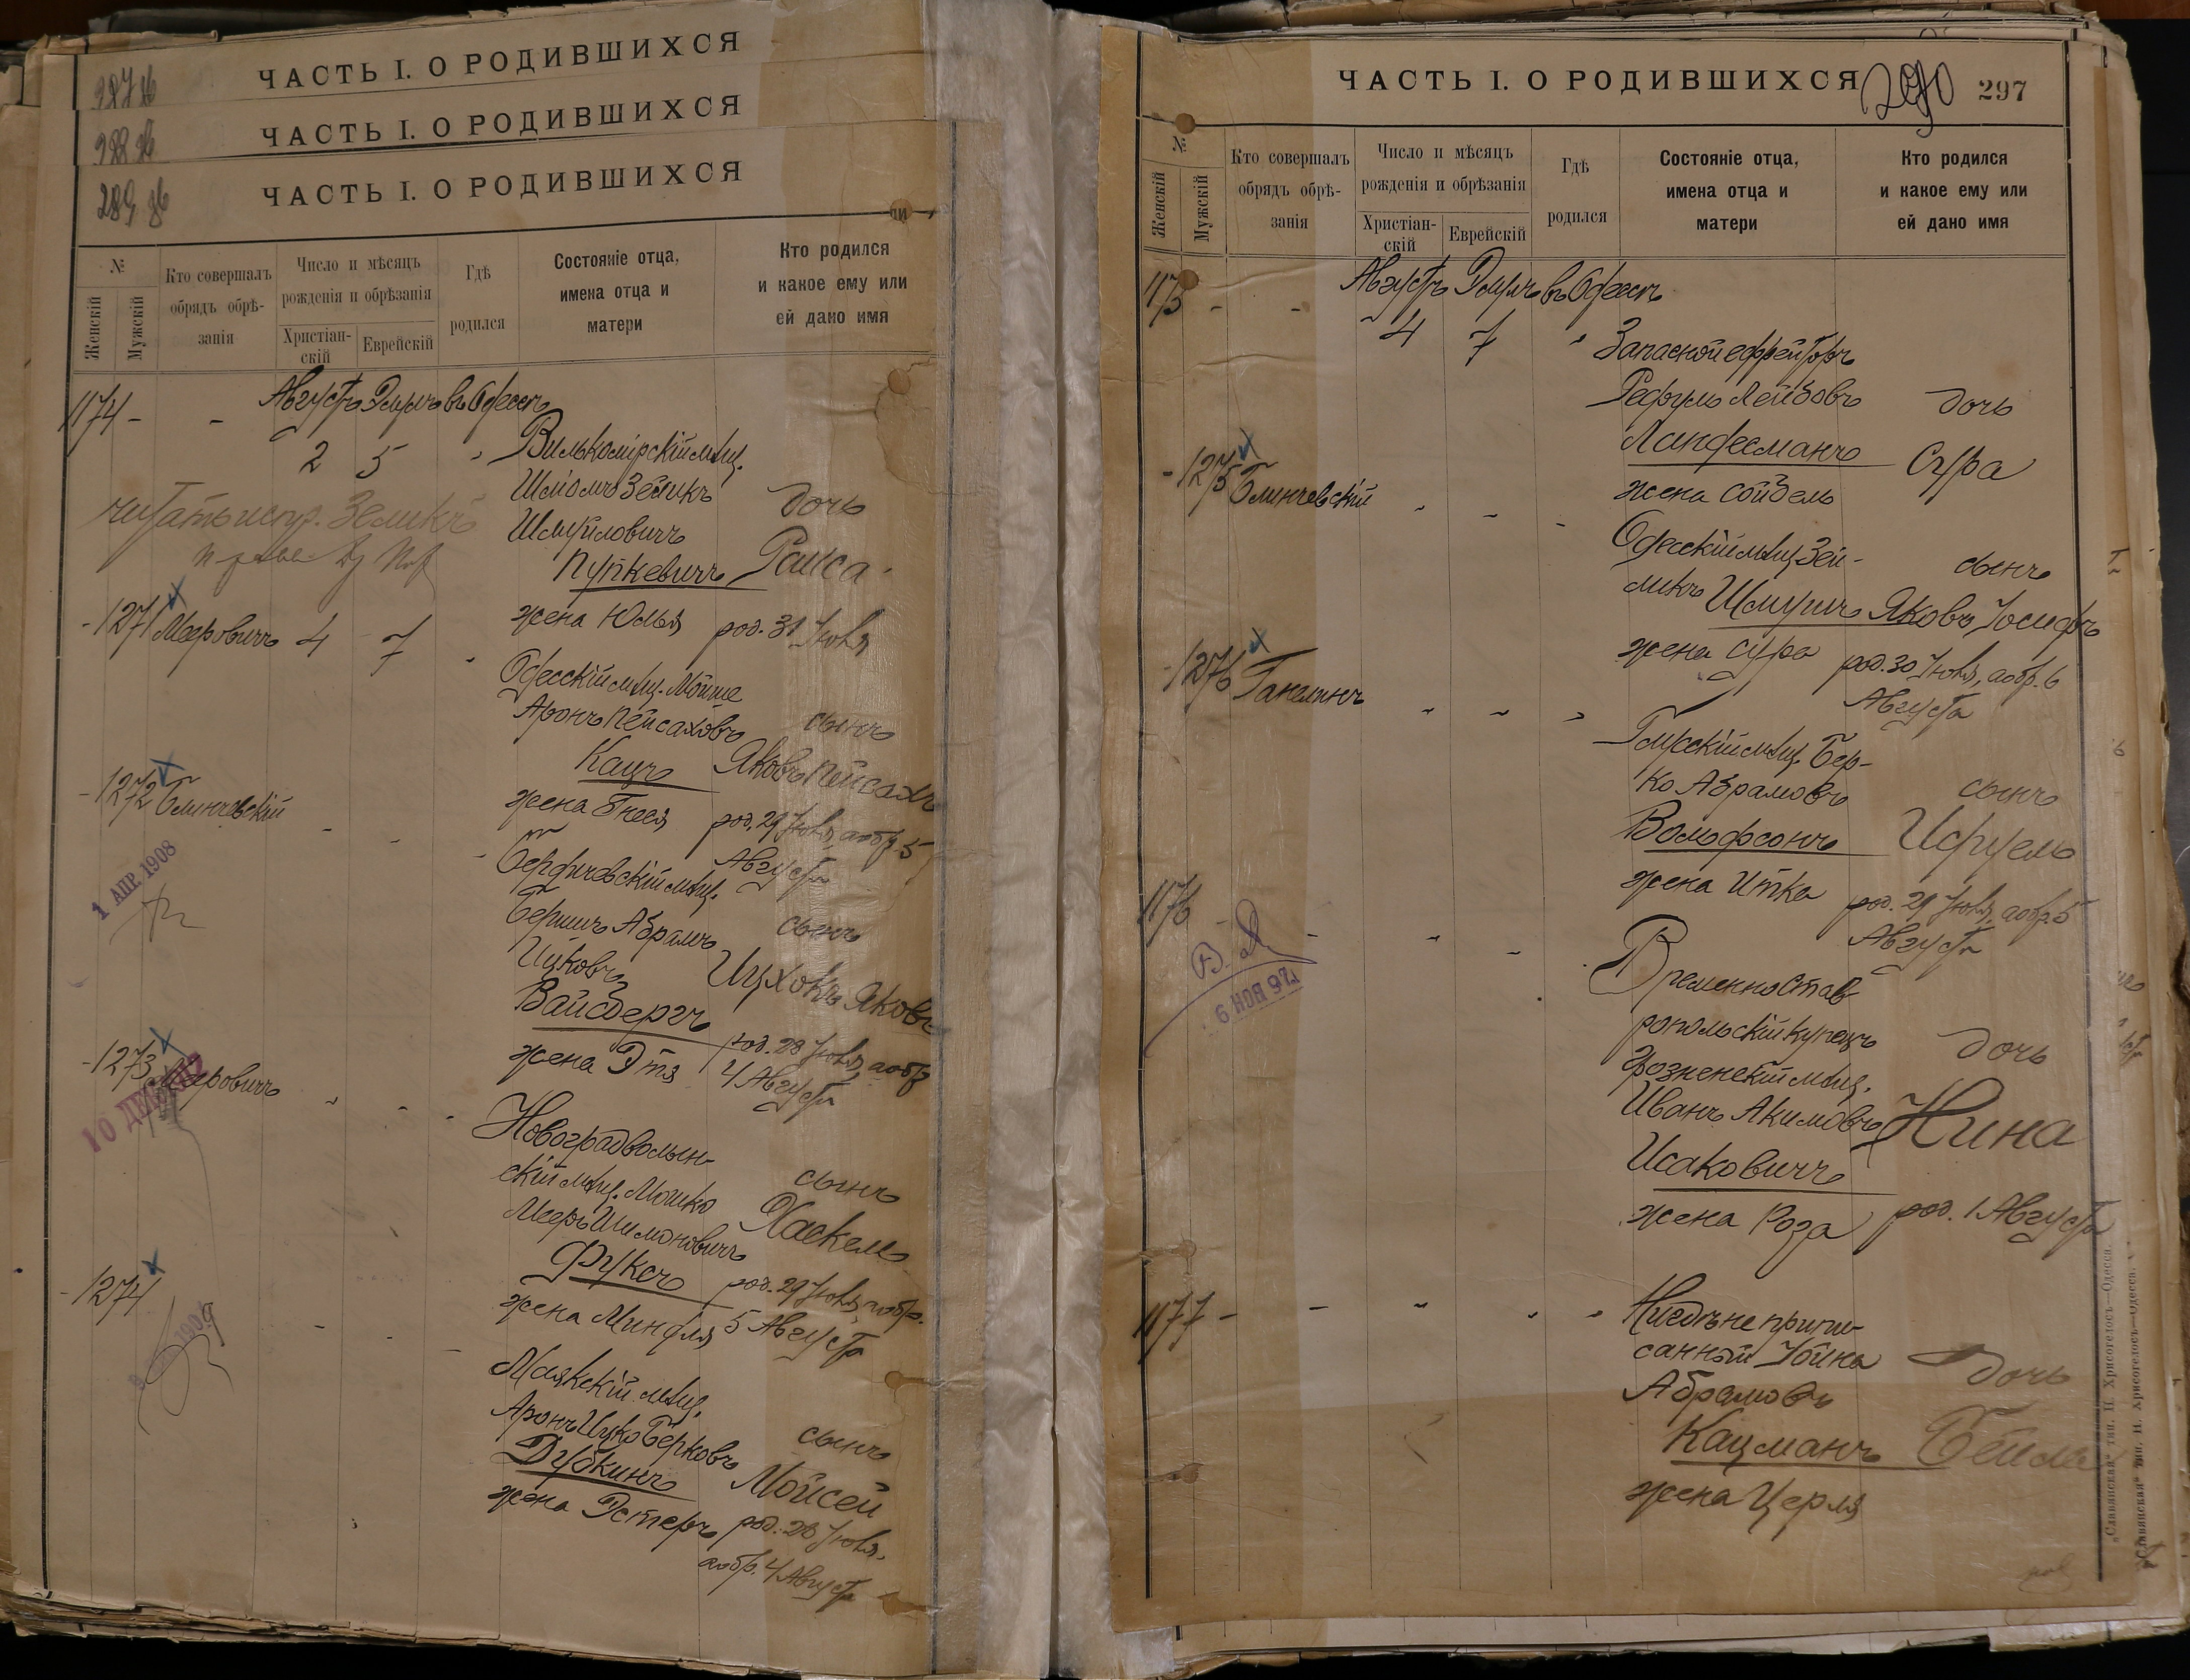 287 об
ЧАСТЬ I. О РОДИВШИХСЯ
288 об
ЧАСТЬ I. О РОДИВШИХСЯ
289 об
ЧАСТЬ I. О РОДИВШИХСЯ
№
Женскій
Мужскій
Кто совершалъ
обрядъ обрѣ-
занія
Число и мѣсяцъ
рожденія и обрѣзанія
Христіан-
скій
Еврейскій
Гдѣ
родился
Состояніе отца,
имена отца и
матери
Кто родился
и какое ему или
ей дано имя
1174 - - Августъ Элулъ въ Одессѣ
2 5 "
Вилькомірскій мѣщ.
Шліомъ Зеликъ
Шмуйловичъ
Пупкевичъ
жена Юлья
дочь
Раиса
род. 31 Іюля
читать испр. Зеликъ
- 1271 Мееровичъ 4 7 "
Одесскій мѣщ. Мойше
Аронъ Пейсаховъ
Кацъ
жена Гнеся
сынъ
Яковъ Пейсахъ
род. 29 Іюля, а обр. 5
Августа
- 1272 Блинчевскій - - -
Бердичевскій мѣщ.
Бершъ Абрамъ
Ицковъ
Вайсбергъ
жена Этя
сынъ
Ицхокъ Яковъ
род. 28 Іюля, а обр.
4 Августа
1 АПР. 1908
- 1273 Мееровичъ " - -
Новоградволын-
скій мѣщ. Мошко
Мееръ Шимоновичъ
Фуксъ
жена Миндля
сынъ
Хаскель
род. 29 Іюля, а обр.
5 Августа
- 1274 - - -
Маякскій мѣщ.
Аронъ Ицко Берковъ
Дубкинъ
жена Эстеръ
сынъ
Мойсей
род. 28 Іюля,
а обр. 4 Августа
ЧАСТЬ I. О РОДИВШИХСЯ
290
297
№
Женскій
Мужскій
Кто совершалъ
обрядъ обрѣ-
занія
Число и мѣсяцъ
рожденія и обрѣзанія
Христіан-
скій
Еврейскій
Гдѣ
родился
Состояніе отца,
имена отца и
матери
Кто родился
и какое ему или
ей дано имя
1175 - - Августъ Элулъ въ Одессѣ
4 7 "
Запасной ефрейторъ
Рефулъ Лейбовъ
Ландесманъ
жена Сойбель
дочь
Сура
- 1275 Блинчевскій " - -
Одесскій мѣщ. Зей-
ликъ Шмулъ
жена Сура
сынъ
Яковъ Іосифъ
род. 30 Іюля, а обр. 6
Августа
- 1276 " - -
Берко Абрамовъ
Вольфсонъ
жена Итка
сынъ
Исруель
род. 29 Іюля, а обр. 5
Августа
1176 - - " -
Временно Став-
ропольскій купецъ
Грозненскій мѣщ.
Иванъ Акимовъ
Исаковичъ
жена Роза
дочь
Нина
род. 1 Августа
1177 - - " " "
Нигдѣ не припи-
санный Іойна
Абрамовъ
Кацманъ
жена Церля
дочь
Бейла
„Славянская“ тип. Н. Хрисогелосъ—Одесса.